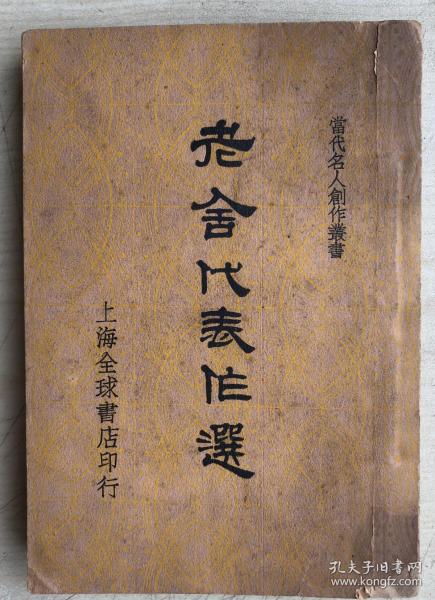 當代名人創作叢書
老舍代表作選
上海全球書店印行
孔夫子旧书网
www.kongfz.com